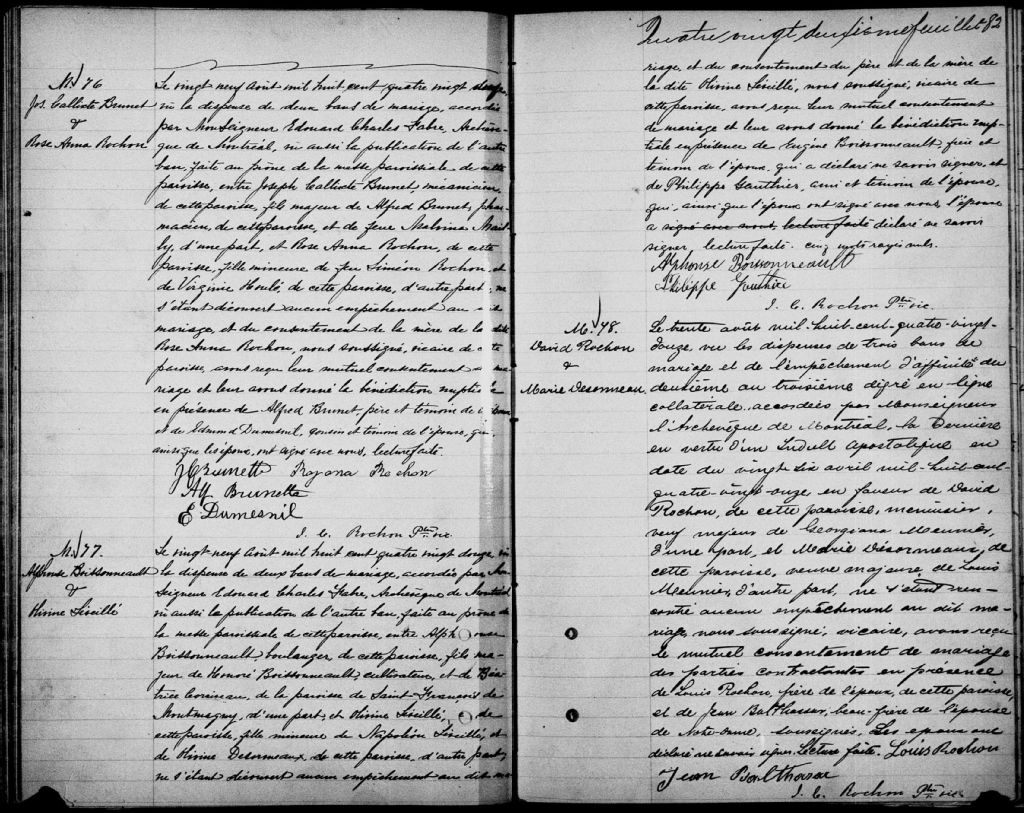 M. 76
Jos. Callixte Brunet
&
Rose Anna Rochon
Le vingt neuf Août mil huit cent quatre vingt douze,
vu la dispense de deux bans de mariage, accordée
par Monseigneur Edouard Charles Fabre, Archevê-
que de Montréal, vu aussi la publication de l'autre
ban, faite au prône de la messe paroissiale de cette
paroisse, entre Joseph Callixte Brunet, mécanicien,
de cette paroisse, fils majeur de Alfred Brunet, phar-
macien, de cette paroisse, et de feue Malvina
d'une part, et Rose Anna Rochon, de cette
paroisse, fille mineure de feu Siméon Rochon, et
de Virginie Houlé de cette paroisse, d'autre part; ne
s'étant découvert aucun empêchement au dit
mariage, et du consentement de la mère de la dite
Rose Anna Rochon, nous soussigné, vicaire de cette
paroisse, avons reçu leur mutuel consentement de ma-
riage et leur avons donné la bénédiction nuptiale
en présence de Alfred Brunet, père et témoin de l'époux
et de Edmond Dumesnil, cousin et témoin de l'épouse, qui,
ainsi que les époux, ont signé avec nous, lecture faite.
J C Brunett Rosana Rochon
Alf Brunette
E Dumesnil
J. C. Rochon Ptre vic.
M. 77.
Alphonse Boissonneault
&
Olivine Sévillé
Le vingt neuf Août mil huit cent quatre vingt douze, vu
la dispense de deux bans de mariage, accordée par Mon-
seigneur Edouard Charles Fabre, Archevêque de Montréal
vu aussi la publication de l'autre ban, faite au prône de
la messe paroissiale de cette paroisse, entre Alphonse
Boissonneault, boulanger, de cette paroisse, fils ma-
jeur de Honoré Boissonneault, cultivateur, et de Béa-
trice Corineau, de la paroisse de Saint François de
Montmagny, d'une part, et Olivine Sévillé, de
cette paroisse, fille mineure de Napoléon Sévillé, et
de Olivine Desormeaux, de cette paroisse, d'autre part,
ne s'étant découvert aucun empêchement au dit ma-
Quatre vingt deuxième feuillet 82
riage, et du consentement du père et de la mère de
la dite Olivine Sévillé, nous soussigné, vicaire de
cette paroisse, avons reçu leur mutuel consentement
de mariage et leur avons donné la bénédiction nup-
tiale en présence de Eugène Boissonneault, frère et
témoin de l'époux, qui a déclaré ne savoir signer, et
de Philippe Gauthier, ami et témoin de l'épouse,
qui, ainsi que l'époux, ont signé avec nous, l'épouse
a signé avec nous, lecture faite déclaré ne savoir
signer, lecture faite. cinq mots rayés nuls.
Alphonse Boissonneault
Philippe Gouthier
J. C. Rochon Ptre vic.
M. 78.
David Rochon
&
Marie Desormeau.
Le trente août mil-huit-cent-quatre-vingt-
douze, vu les dispenses de trois bans de
mariage et de l'empêchement d'affinité du
deuxième au troisième dégré en ligne
collatérale, accordées par Monseigneur
l'Archevêque de Montréal, la dernière
en vertu d'un Indult Apostolique en
date du vingt six avril mil-huit-cent-
quatre-vingt-onze en faveur de David
Rochon, de cette paroisse, menuisier,
veuf majeur de Georgiana Meunier,
d'une part, et Marie Désormeaux, de
cette paroisse, veuve majeure, de Louis
Meunier, d'autre part, ne s'étant ren-
contré aucun empêchement au dit ma-
riage, nous soussigné, vicaire, avons reçu
le mutuel consentement de mariage
des parties contractantes en présence
de Louis Rochon, frère de l'époux, de cette paroisse,
et de Jean Balthasar, beau-frère de l'épouse
de Notre-Dame, soussignés, Les époux ont
déclaré ne savoir signer. Lecture faite. Louis Rochon
Jean Balthasar
J. C. Rochon Ptre vic.